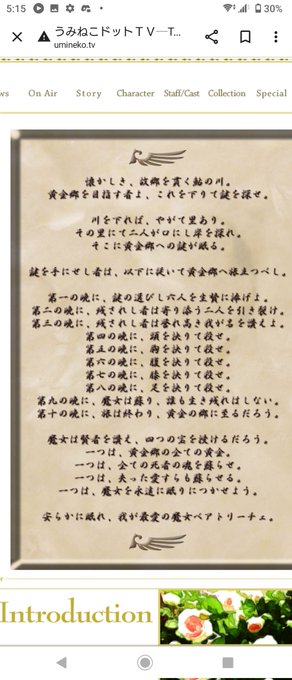 5:15
30%
うみねこドットＴＶ─T...
umineko.tv
ws On Air Story Character Staff/Cast Collection Special
懐かしき、故郷を貫く鮎の川。
黄金郷を目指す者よ、これを下りて鍵を探せ。
川を下れば、やがて里あり。
その里にて二人が口にし岸を探れ。
そこに黄金郷への鍵が眠る。
鍵を手にせし者は、以下に従いて黄金郷へ旅立つべし。
第一の晩に、鍵の選びし六人を生贄に捧げよ。
第二の晩に、残されし者は寄り添う二人を引き裂け。
第三の晩に、残されし者は誉れ高き我が名を讃えよ。
第四の晩に、頭を抉りて殺せ。
第五の晩に、胸を抉りて殺せ。
第六の晩に、腹を抉りて殺せ。
第七の晩に、膝を抉りて殺せ。
第八の晩に、足を抉りて殺せ。
第九の晩に、魔女は蘇り、誰も生き残れはしない。
第十の晩に、旅は終わり、黄金の郷に至るだろう。
魔女は賢者を讃え、四つの宝を授けるだろう。
一つは、黄金郷の全ての黄金。
一つは、全ての死者の魂を蘇らせ。
一つは、失った愛すらも蘇らせる。
一つは、魔女を永遠に眠りにつかせよう。
安らかに眠れ、我が最愛の魔女ベアトリーチェ。
Introduction